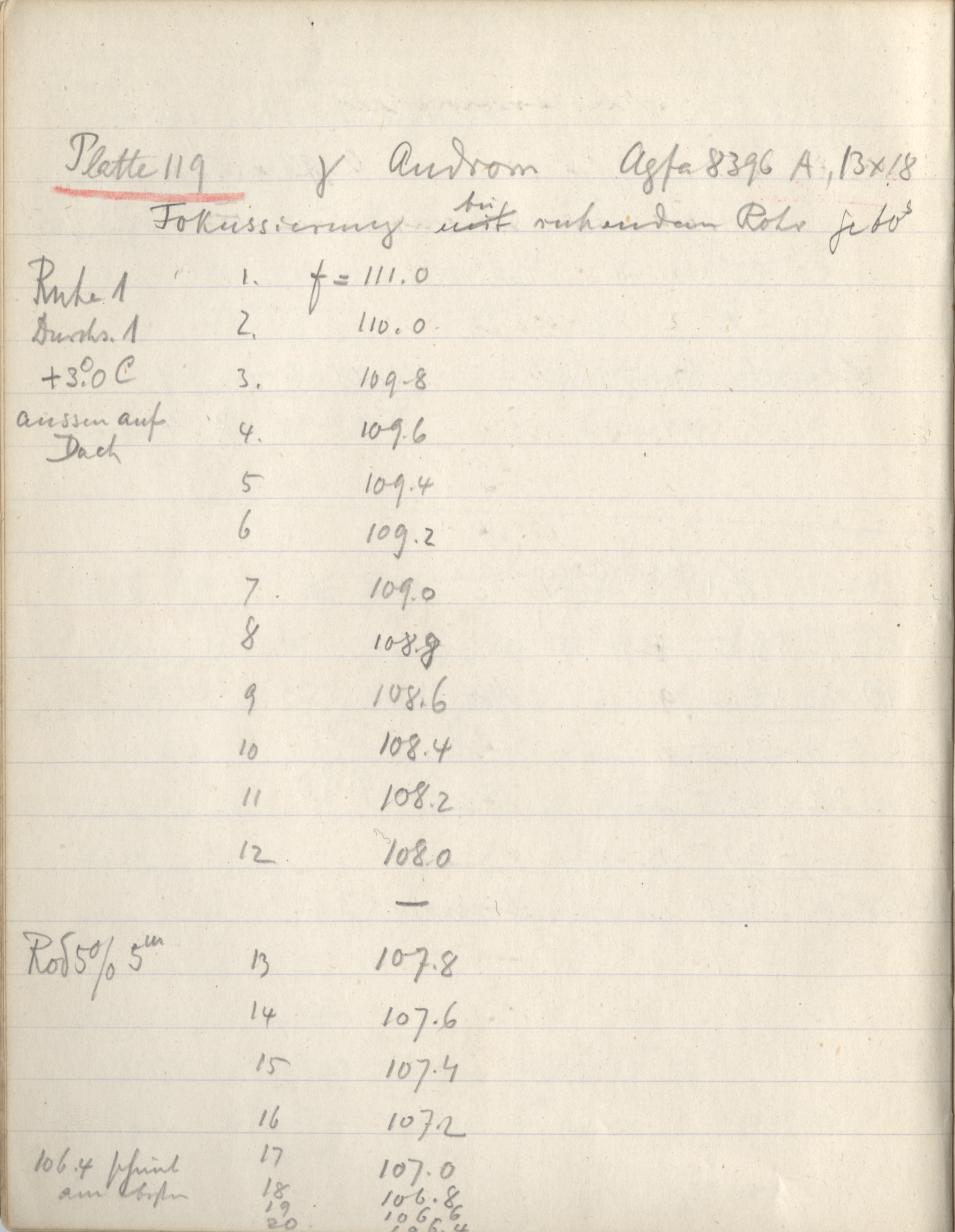 Platte 119 γ Androm Agfa 8396 A, 13x18
Fokussierung mit bei ruhendem Rohr je 60ˢ
Ruhe 1 1. f = 111.0
Durchs. 1 2. 110.0
+3.°0 C 3. 109.8
aussen auf 4. 109.6
Dach
5 109.4
6 109.2
7. 109.0
8 108.8
9 108.6
10 108.4
11 108.2
12 108.0
—
Rod 5% 5ᵐ 13 107.8
14 107.6
15 107.4
16 107.2
17 107.0
106.4 scheint 18 106.8
am besten 19 106.6
20 106.4